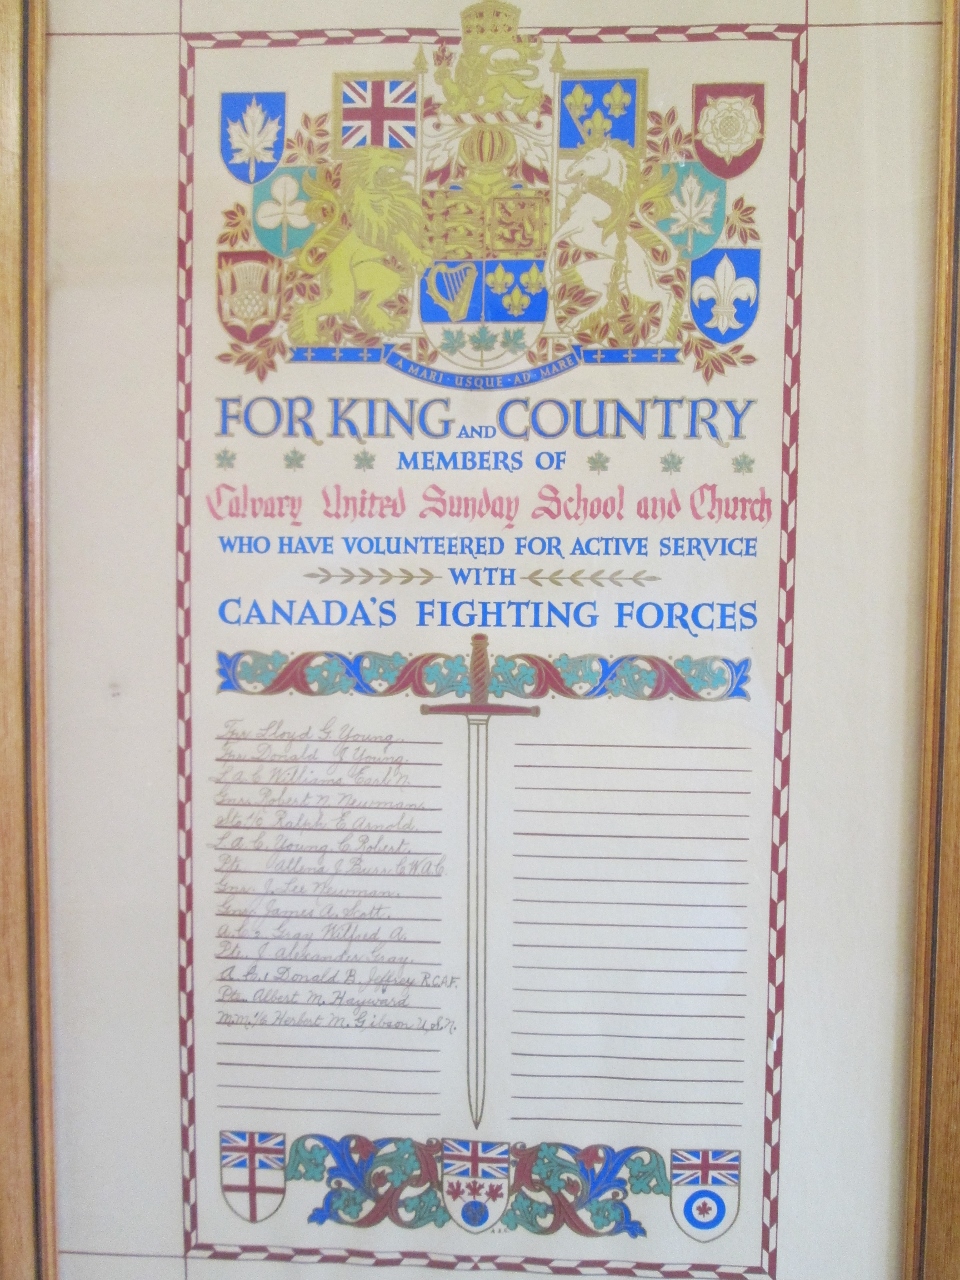 A MARI · USQUE · AD · MARE
FOR KING AND COUNTRY
MEMBERS OF
Calvary United Sunday School and Church
WHO HAVE VOLUNTEERED FOR ACTIVE SERVICE
WITH
CANADA'S FIGHTING FORCES
Lloyd G. Young
Donald Young.
L.A.C. Williams Earl N.
Gnr. Robert N. Newmans
Ralph E. Arnold.
L.A.C. Young, C. Robert.
Pte. J. Burr C.W.A.C.
Gnr. J. Lee Newman.
Gnr. James A. Scott.
A.C.2 Gray Wilfred A.
Pte. J. Alexander Gray.
A.C.1 Donald B. Jeffrey R.C.A.F.
Pte. Albert M. Hayward
Herbert M. Gibson U.S.N.